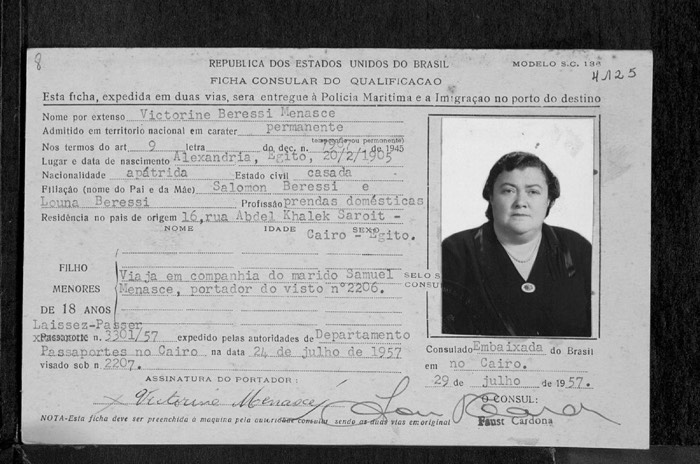 8
REPUBLICA DOS ESTADOS UNIDOS DO BRASIL
MODELO S.C. 138
4125
FICHA CONSULAR DO QUALIFICAÇAO
Esta ficha, expedida em duas vias, sera entregue à Polícia Maritima e a Imigraçao no porto do destino
Nome por extenso Victorine Beressi Menasce
Admitido em territorio nacional em carater permanente
(temporario ou permanente)
Nos termos do art 9 letra do dec. n. de 1945
Lugar e data de nascimento Alexandria, Egito, 20/2/1905
Nacionalidade apátrida Estado civil casada
Filiação (nome do Pai e da Mãe) Salomon Beressi e
Louna Beressi Profissão prendas domésticas
Residência no pais de origem 16, rua Abdel Khalek Saroit -
NOME IDADE SEXO
Cairo - Egito.
FILHO
MENORES
DE 18 ANOS
Viaja em companhia do marido Samuel
Menasce, portador do visto nº2206.
SELO S
CONSU
Laissez-Passer
Passaporte n. 3301/57 expedido pelas autoridades de Departamento
Passaportes no Cairo na data 24 de julho de 1957
visado sob n 2207.
Consulado Embaixada do Brasil
em no Cairo.
29 de julho de 1957.
ASSINATURA DO PORTADOR:
x Victorine Menasce
O CONSUL:
Faust Cardona
NOTA-Esta ficha deve ser preenchida a maquina pela autoridade consular sendo as duas vias em original